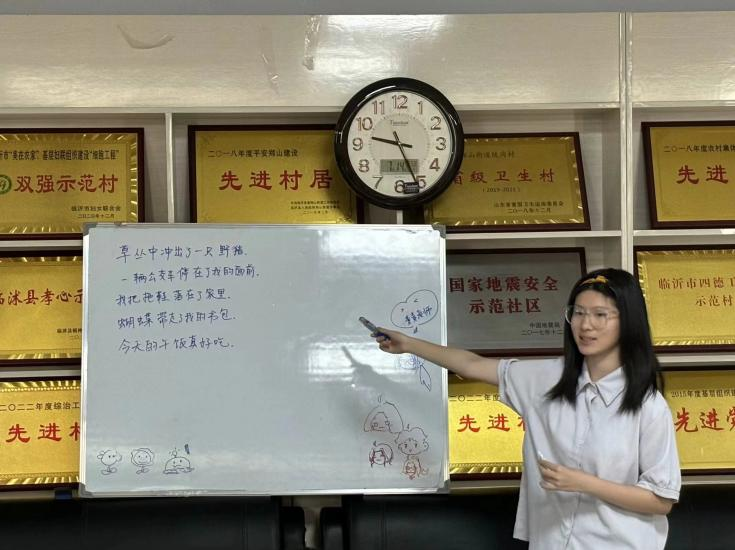 沂市"美在农家"基层妇联组织建设"细胞工程"
双强示范村
临沂市妇女联合会
二〇二〇年十二月
二〇一八年度平安郯山建设
先进村居
12
1
2
3
4
5
6
7
8
9
10
11
省级卫生村
(2019-2021)
山东省爱国卫生运动委员会
二〇一八年十二月
二〇一八年度农村集体
先进
草丛中冲出了一只野猪.
一辆公交车停在了我的面前.
我把拖鞋落在了家里.
蝴蝶带走了我的书包.
今天的午饭真好吃.
临沭县孝心示
国家地震安全
示范社区
中国地震局
二〇一七年十二
临沂市四德工
示范村
二〇二二年度综治工
先进村
年度
先
2015年度基层组织建
先进党